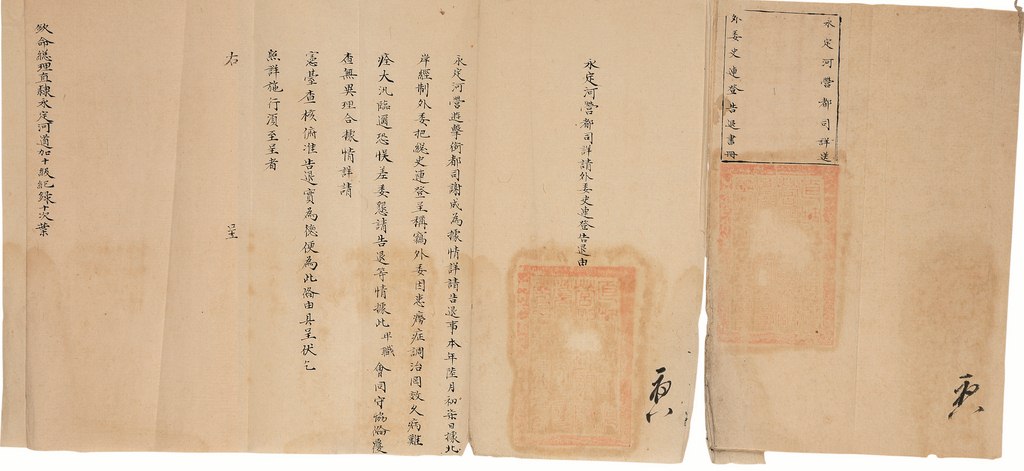 永定河營都司詳送
外委史連登告退書冊
永定河營都司詳請外委史連登告退由
永定河營遊擊銜都司謝成為據情詳請告退事本年陸月初柒日據北
岸經制外委把總史連登呈稱竊外委因患癆症調治罔效久病難
痊大汛臨邇恐悞差委懇請告退等情據此卑職會同守協俻覆
查無異理合據情詳請
憲臺查核俯准告退實為德便為此俻由具呈伏乞
照詳施行須至呈者
右 呈
欽命總理直隸永定河道加十級紀錄十次葉